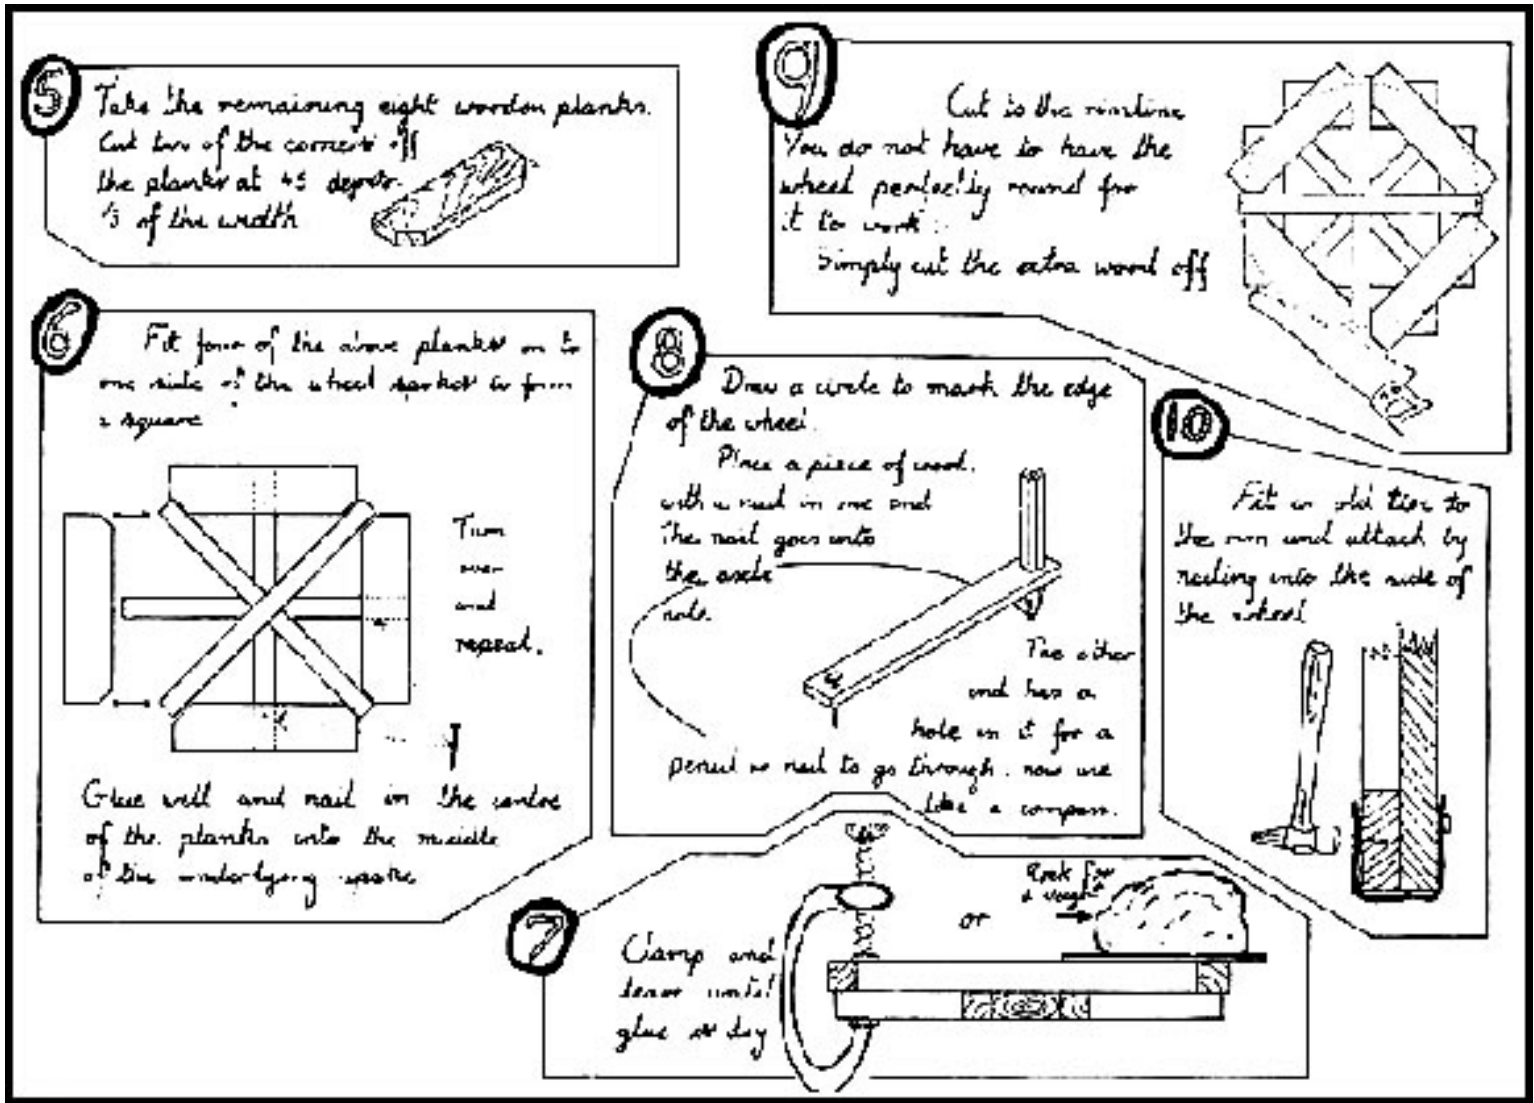 5
Take the remaining eight wooden planks.
Cut two of the corners off
the planks at 45 degrees
1/3 of the width
6
Fit four of the above planks on to
one side of the wheel to form
a square
Turn
over
and
repeat.
Glue well and nail in the centre
of the planks into the middle
of the underlying
7
Clamp and
leave until
glue is dry
or
Rock for
a weight
8
Draw a circle to mark the edge
of the wheel.
Place a piece of wood.
with a nail in one end
The nail goes into
the axle
hole.
The other
end has a
hole in it for a
pencil or nail to go through. now use
like a compass.
9
Cut to the
You do not have to have the
wheel perfectly round for
it to work
Simply cut the extra wood off
10
Fit an old tire to
the rim and attach by
nailing into the side of
the wheel